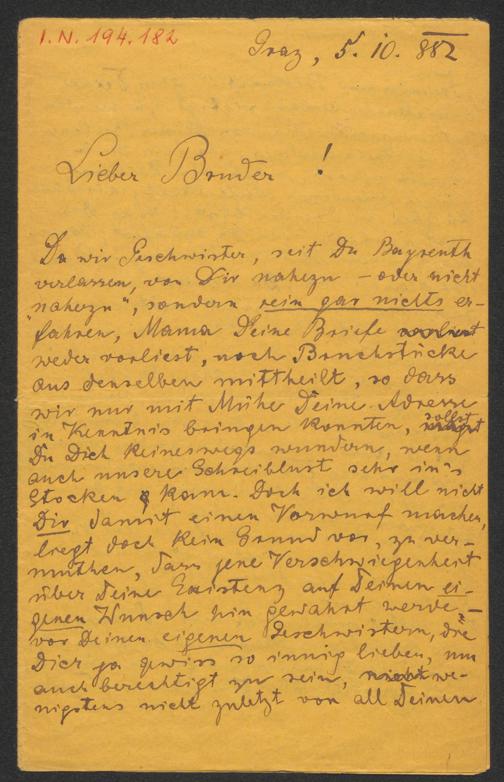 I. N. 194.182
Graz, 5. 10. 882
Lieber Bruder !
Da wir Geschwister, seit Du Bayreuth
verlassen, von Dir nahezu – oder nicht
"nahezu", sondern rein gar nichts er-
fahren, Mama Deine Briefe
weder vorliest, noch Bruchstücke
aus denselben mittheilt, so dass
wir nur mit Mühe Deine Adresse
in Kenntnis bringen konnten, sollst
Du Dich keineswegs wundern, wenn
auch unsere Schreiblust sehr in's
Stocken kam. Doch ich will nicht
Dir damit einen Vorwurf machen,
liegt doch kein Grund vor, zu ver-
muthen, dass jene Verschwiegenheit
über Deine Existenz auf Deinen ei-
genen Wunsch hin gewahrt werde, –
vor Deinen eigenen Geschwistern, die
Dich ja gewiss so innig lieben, um
auch berechtigt zu sein, we-
nigstens nicht zuletzt von all Deinen